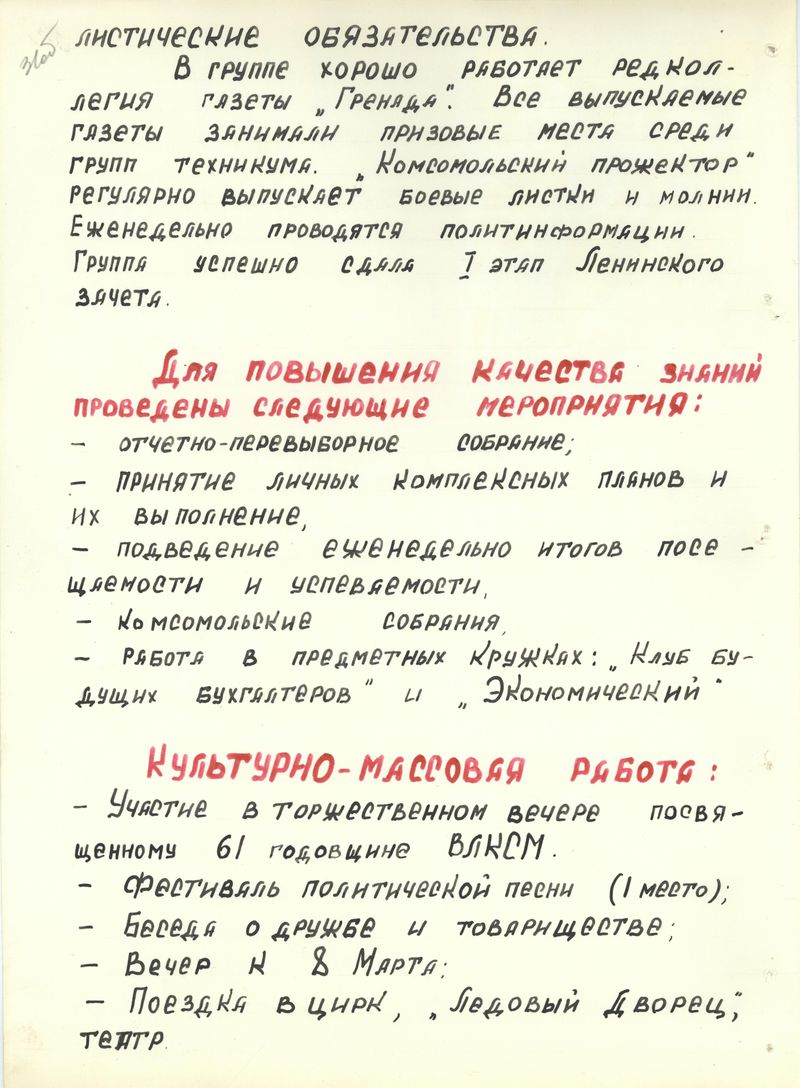 листические обязательства.
В группе хорошо работает редкол-
легия газеты „Гренада". Все выпускаемые
газеты занимали призовые места среди
групп техникума. „Комсомольский прожектор"
регулярно выпускает боевые листки и молнии.
Еженедельно проводятся политинформации.
Группа успешно сдала I этап Ленинского
зачета.
Для повышения качества знаний
проведены следующие мероприятия:
– отчетно-перевыборное собрание;
– принятие личных комплексных планов и
их выполнение,
– подведение еженедельно итогов посе-
щаемости и успеваемости,
– комсомольские собрания,
– работа в предметных кружках: „Клуб бу-
дущих бухгалтеров" и „Экономический"
Культурно-массовая работа:
– Участие в торжественном вечере посвя-
щенному 61 годовщине ВЛКСМ.
– Фестиваль политической песни (1 место);
– Беседа о дружбе и товариществе;
– Вечер к 8 Марта;
– Поездка в цирк, „Ледовый Дворец",
театр